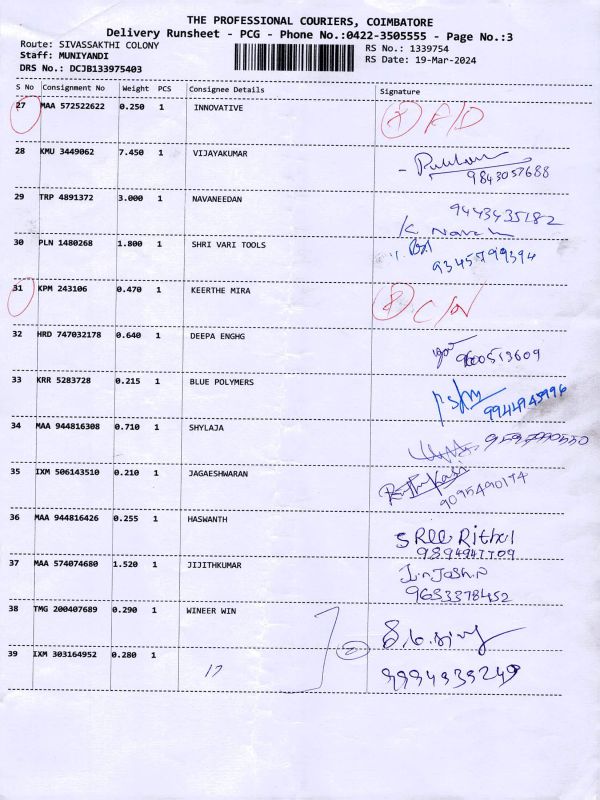 THE PROFESSIONAL COURIERS, COIMBATORE
Delivery Runsheet - PCG - Phone No.:0422-3505555 - Page No.:3
Route: SIVASSAKTHI COLONY RS No.: 1339754
Staff: MUNIYANDI RS Date: 19-Mar-2024
DRS No.: DCJB133975403
S No Consignment No Weight PCS Consignee Details Signature
27 MAA 572522622 0.250 1 INNOVATIVE
28 KMU 3449062 7.450 1 VIJAYAKUMAR
9843057688
29 TRP 4891372 3.000 1 NAVANEEDAN 9443435182
K
30 PLN 1480268 1.800 1 SHRI VARI TOOLS
9345799394
31 KPM 243106 0.470 1 KEERTHE MIRA
32 HRD 747032178 0.640 1 DEEPA ENGHG
9600513609
33 KRR 5283728 0.215 1 BLUE POLYMERS
9944945996
34 MAA 944816308 0.710 1 SHYLAJA
35 IXM 506143510 0.210 1 JAGAESHWARAN
9095490174
36 MAA 944816426 0.255 1 HASWANTH
SREE
37 MAA 574074680 1.520 1 JIJITHKUMAR
9633378452
38 TMG 200407689 0.290 1 WINEER WIN
2
39 IXM 303164952 0.280 1 17
9994939249